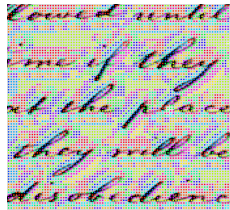 lowed until
ime if they
at the place
they will be
disobedienc